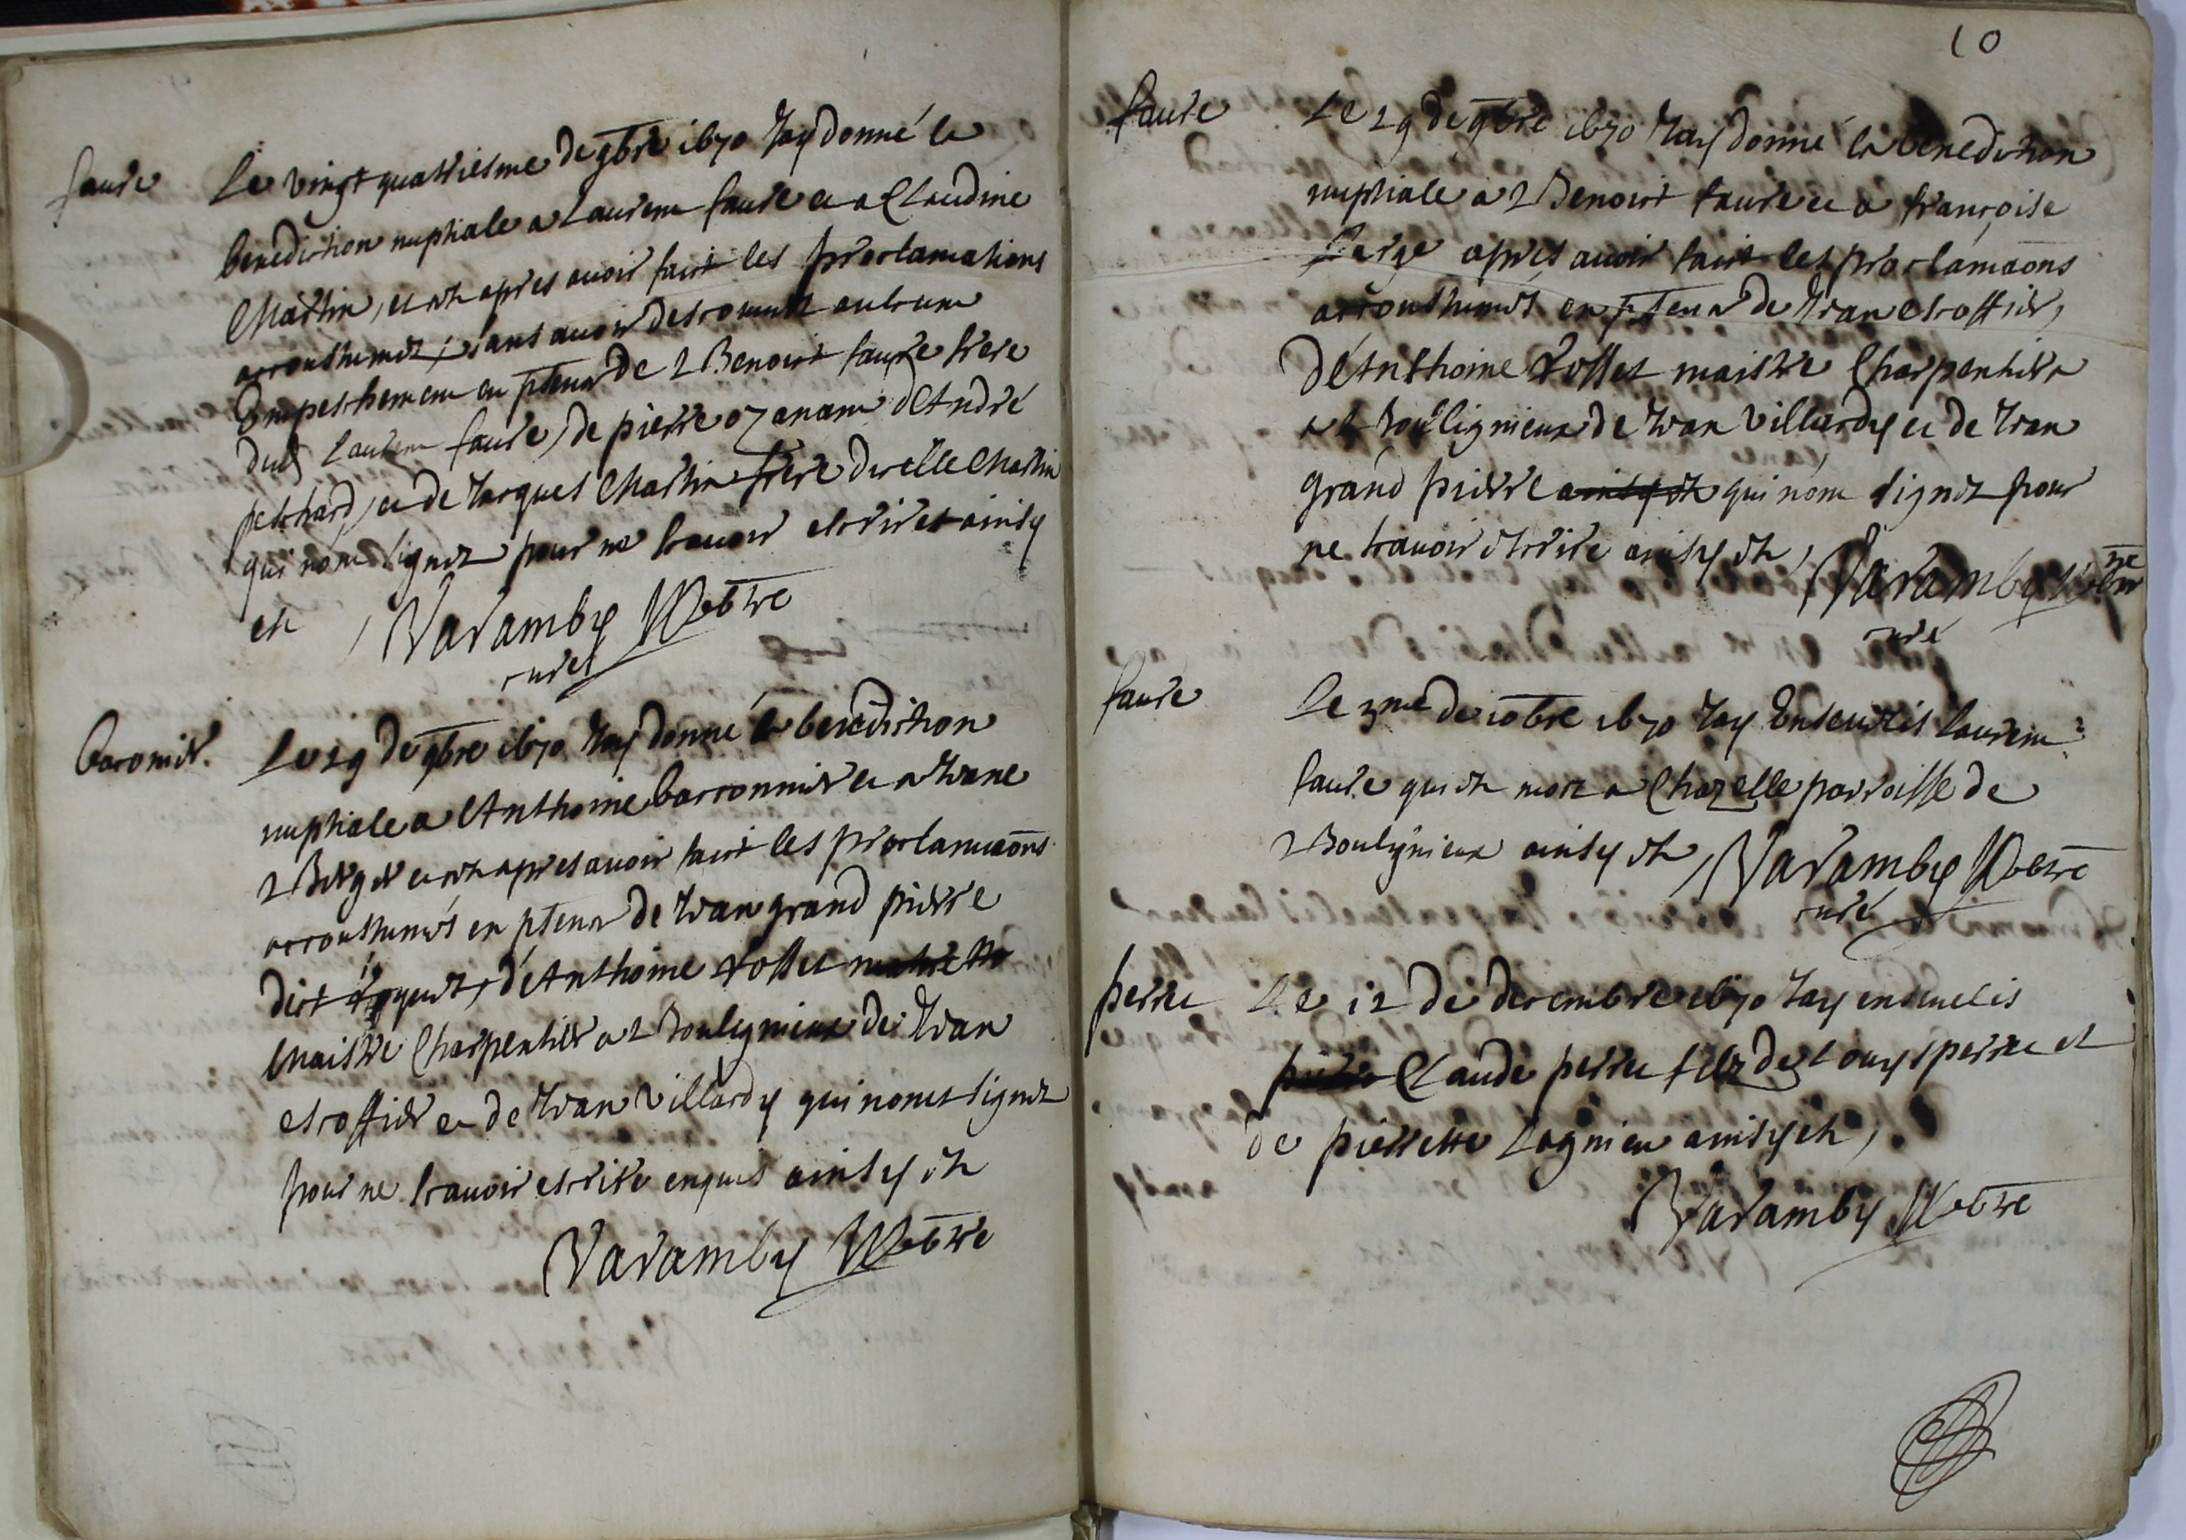 faure
Le vingt quatriesme de 9bre 1670 Jay donné la
benediction nuptiale a Laurent faure et a Claudine
Martin, et ce apres avoir faict les proclamations
accoustumez, sans avoir descouvert aulcune
Empeschement en pñce de Benoist faure frere
dud Laurent faure, de pierre ozanam d'André
peschard, et de Jacques Martin frere dicelle Martin
qui nont signez pour ne scavoir escrire et ainsy
est, Varamby Pbtre
curé
baronier.
Le 29 de 9bre 1670 Jay donné la benediction
nuptiale a Anthoine barronnier et a Jeane
Berger et ce apres avoir faict les proclamaons
accoustumés en pñce de Jean grand pierre
dict, d'Anthoine Rosset
Maistre Charpentier a Bouligneux de Jean
escoffier et de Jean Villardy qui nont signez
pour ne scavoir escrire enquis ainsy est
Varamby Pbtre
10
faure
Le 29 de 9bre 1670 Jay donné la benediction
nuptiale a Benoist faure et a françoise
apres avoir faict les proclamaons
accoustumés en pñce de Jean escoffier,
d'Anthoine Rosset maistre Charpentier
a Boulignieux de Jean Villardy et de Jean
grand pierre ainsy est qui nont signez pour
ne scavoir escrire ainsy est, Varamby pbtre
curé
faure
Le 3me de 10bre 1670 Jay Ensevelis Laurent
faure qui est mort a Chazelle parroisse de
Boulignieux ainsy est, Varamby Pbtre
curé
perret
Le 12 de decembre 1670 Jay ensevelis
Claude perret filz de Louys perret et
de pierrette Lagnieu ainsy est,
Varamby Pbtre